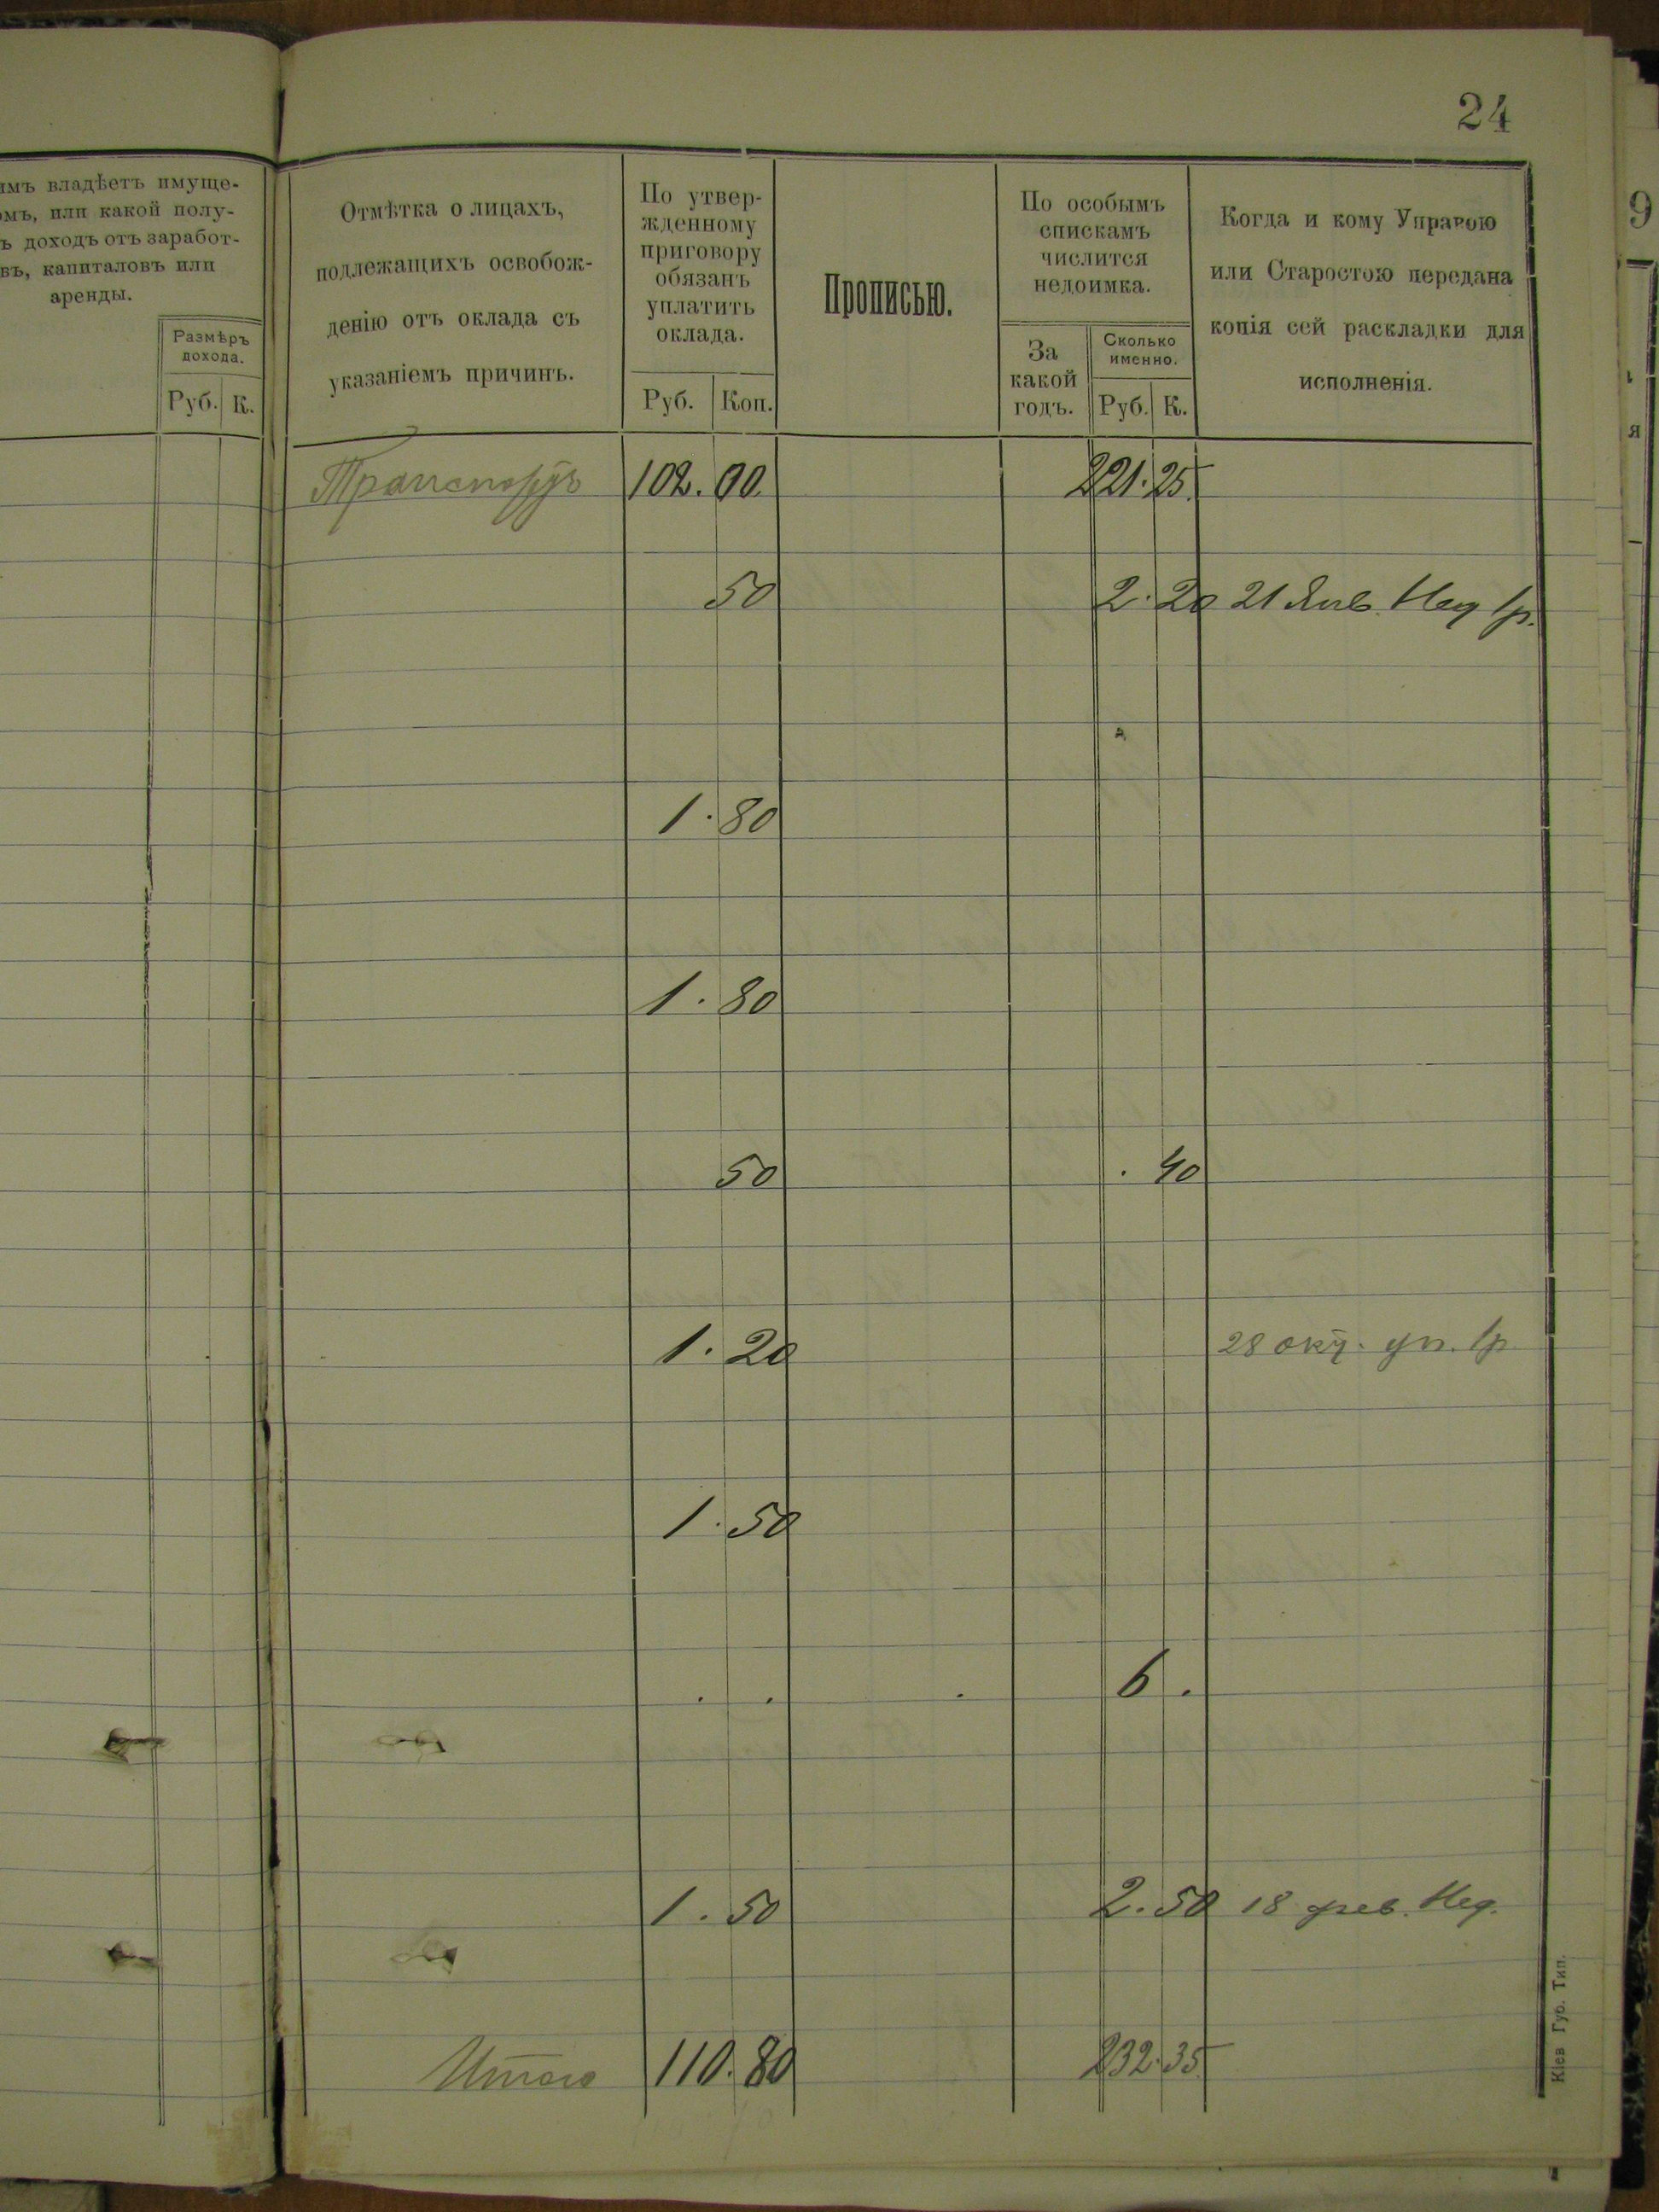 24
имъ владѣетъ имуще-
омъ, или какой полу-
ъ доходъ отъ заработ-
въ, капиталовъ или
аренды.
Размѣръ
дохода.
Руб. К.
Отмѣтка о лицахъ,
подлежащихъ освобож-
денію отъ оклада съ
указаніемъ причинъ.
По утвер-
жденному
приговору
обязанъ
уплатить
оклада.
Руб. Коп.
Прописью.
По особымъ
спискамъ
числится
недоимка.
За
какой
годъ.
Сколько
именно.
Руб. К.
Когда и кому Управою
или Старостою передана
копія сей раскладки для
исполненія.
9
я
Транспортъ 102. 00. 221. 25.
50 2. 20 21 Янв. Нед 1р.
1. 80
1. 80
50 . 40
1. 20 28 окт. уп. 1р
1. 50
. . . 6 .
1. 50 2. 50 18 фев. Нед.
Итого 110. 80 232. 35
Кіев Губ. Тип.